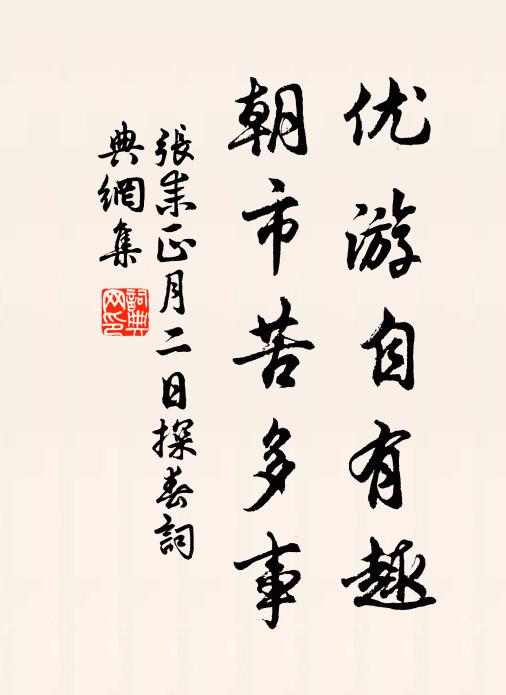 优游自有趣
朝市苦多事
張耒正月二日探春詞
典網集
詞典网印